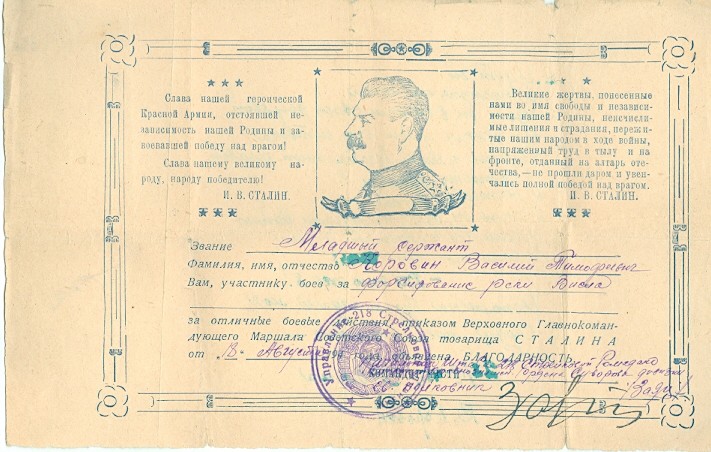 Слава нашей героической
Красной Армии, отстоявшей не-
зависимость нашей Родины и за-
воевавшей победу над врагом!
Слава нашему великому на-
роду, народу победителю!
И. В. СТАЛИН.
Великие жертвы, понесенные
нами во имя свободы и независи-
мости нашей Родины, неисчисли-
мые лишения и страдания, пережи-
тые нашим народом в ходе войны,
напряженный труд в тылу и на
фронте, отданный на алтарь оте-
чества,—не прошли даром и увен-
чались полной победой над врагом.
И. В. СТАЛИН.
Звание Младший сержант
Фамилия, имя, отчество Коровин Василий Тимофеевич
Вам, участнику боев за форсирование реки Висла
за отличные боевые действия, приказом Верховного Главнокоман-
дующего Маршала Советского Союза товарища СТАЛИНА
от Августа года объявлена БЛАГОДАРНОСТЬ
Управление 218 Стрелковой
Командир части